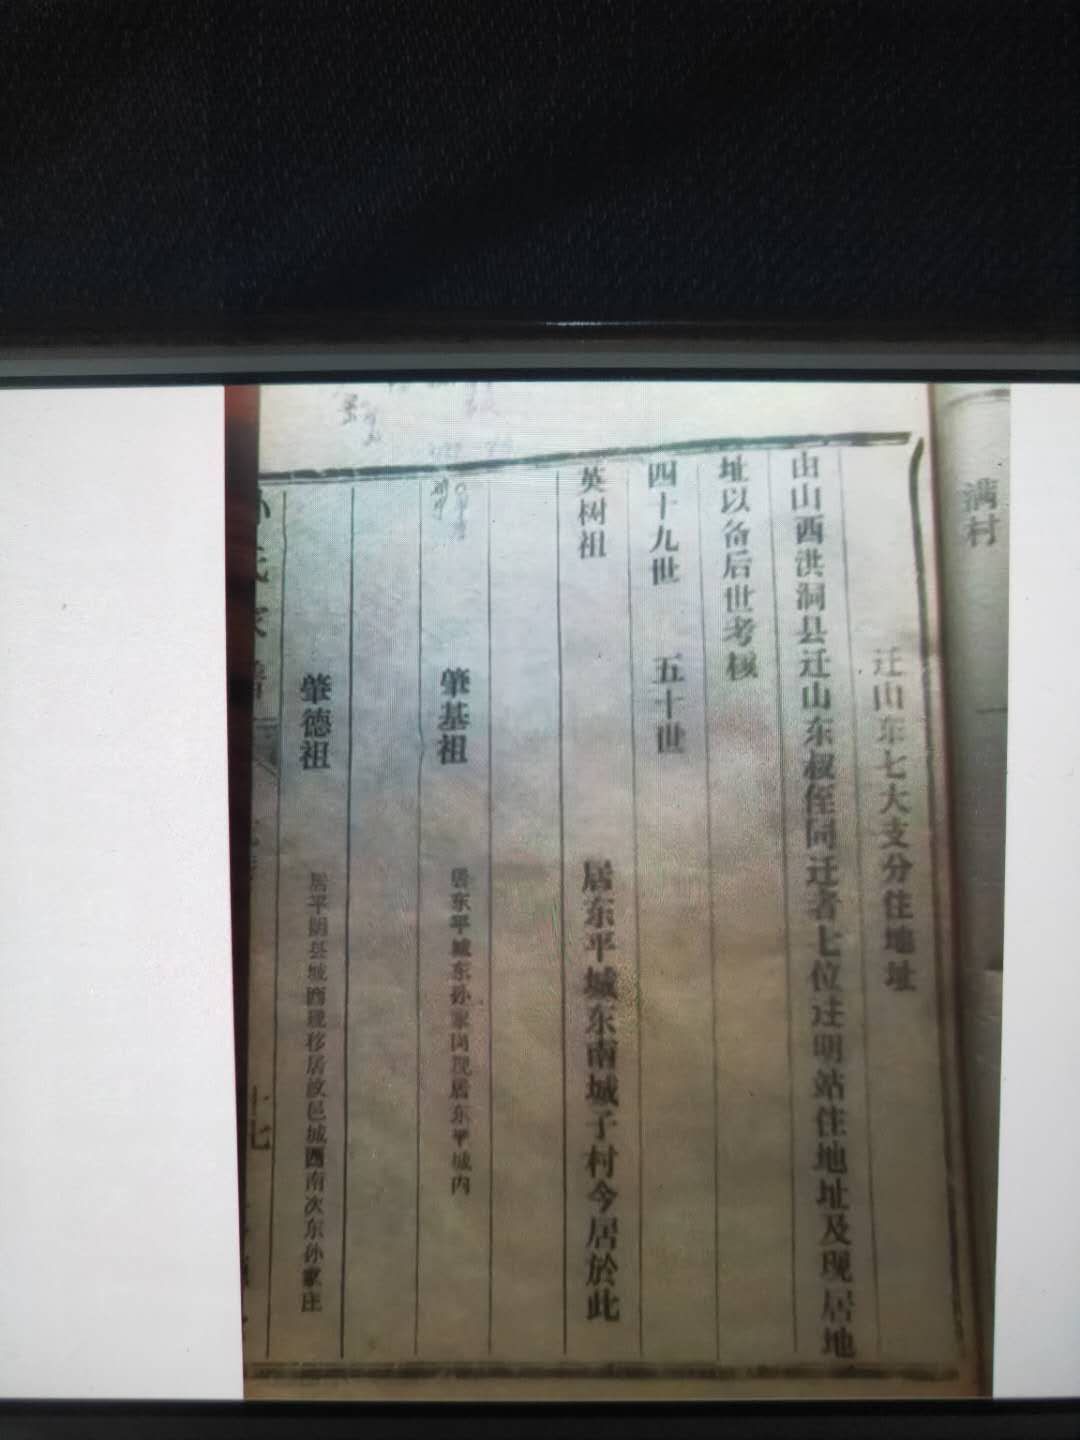 满村
迁山东七大支分住地址
由山西洪洞县迁山东叔侄同迁者七位注明站住地址及现居地
址以备后世考核
四十九世 五十世
英树祖 居东平城东南城子村今居於此
肇基祖 居东平城东孙家岗现居东平城内
肇德祖 居平阴县城西现移居汶邑城西南次东孙家庄
孙氏家谱
十七